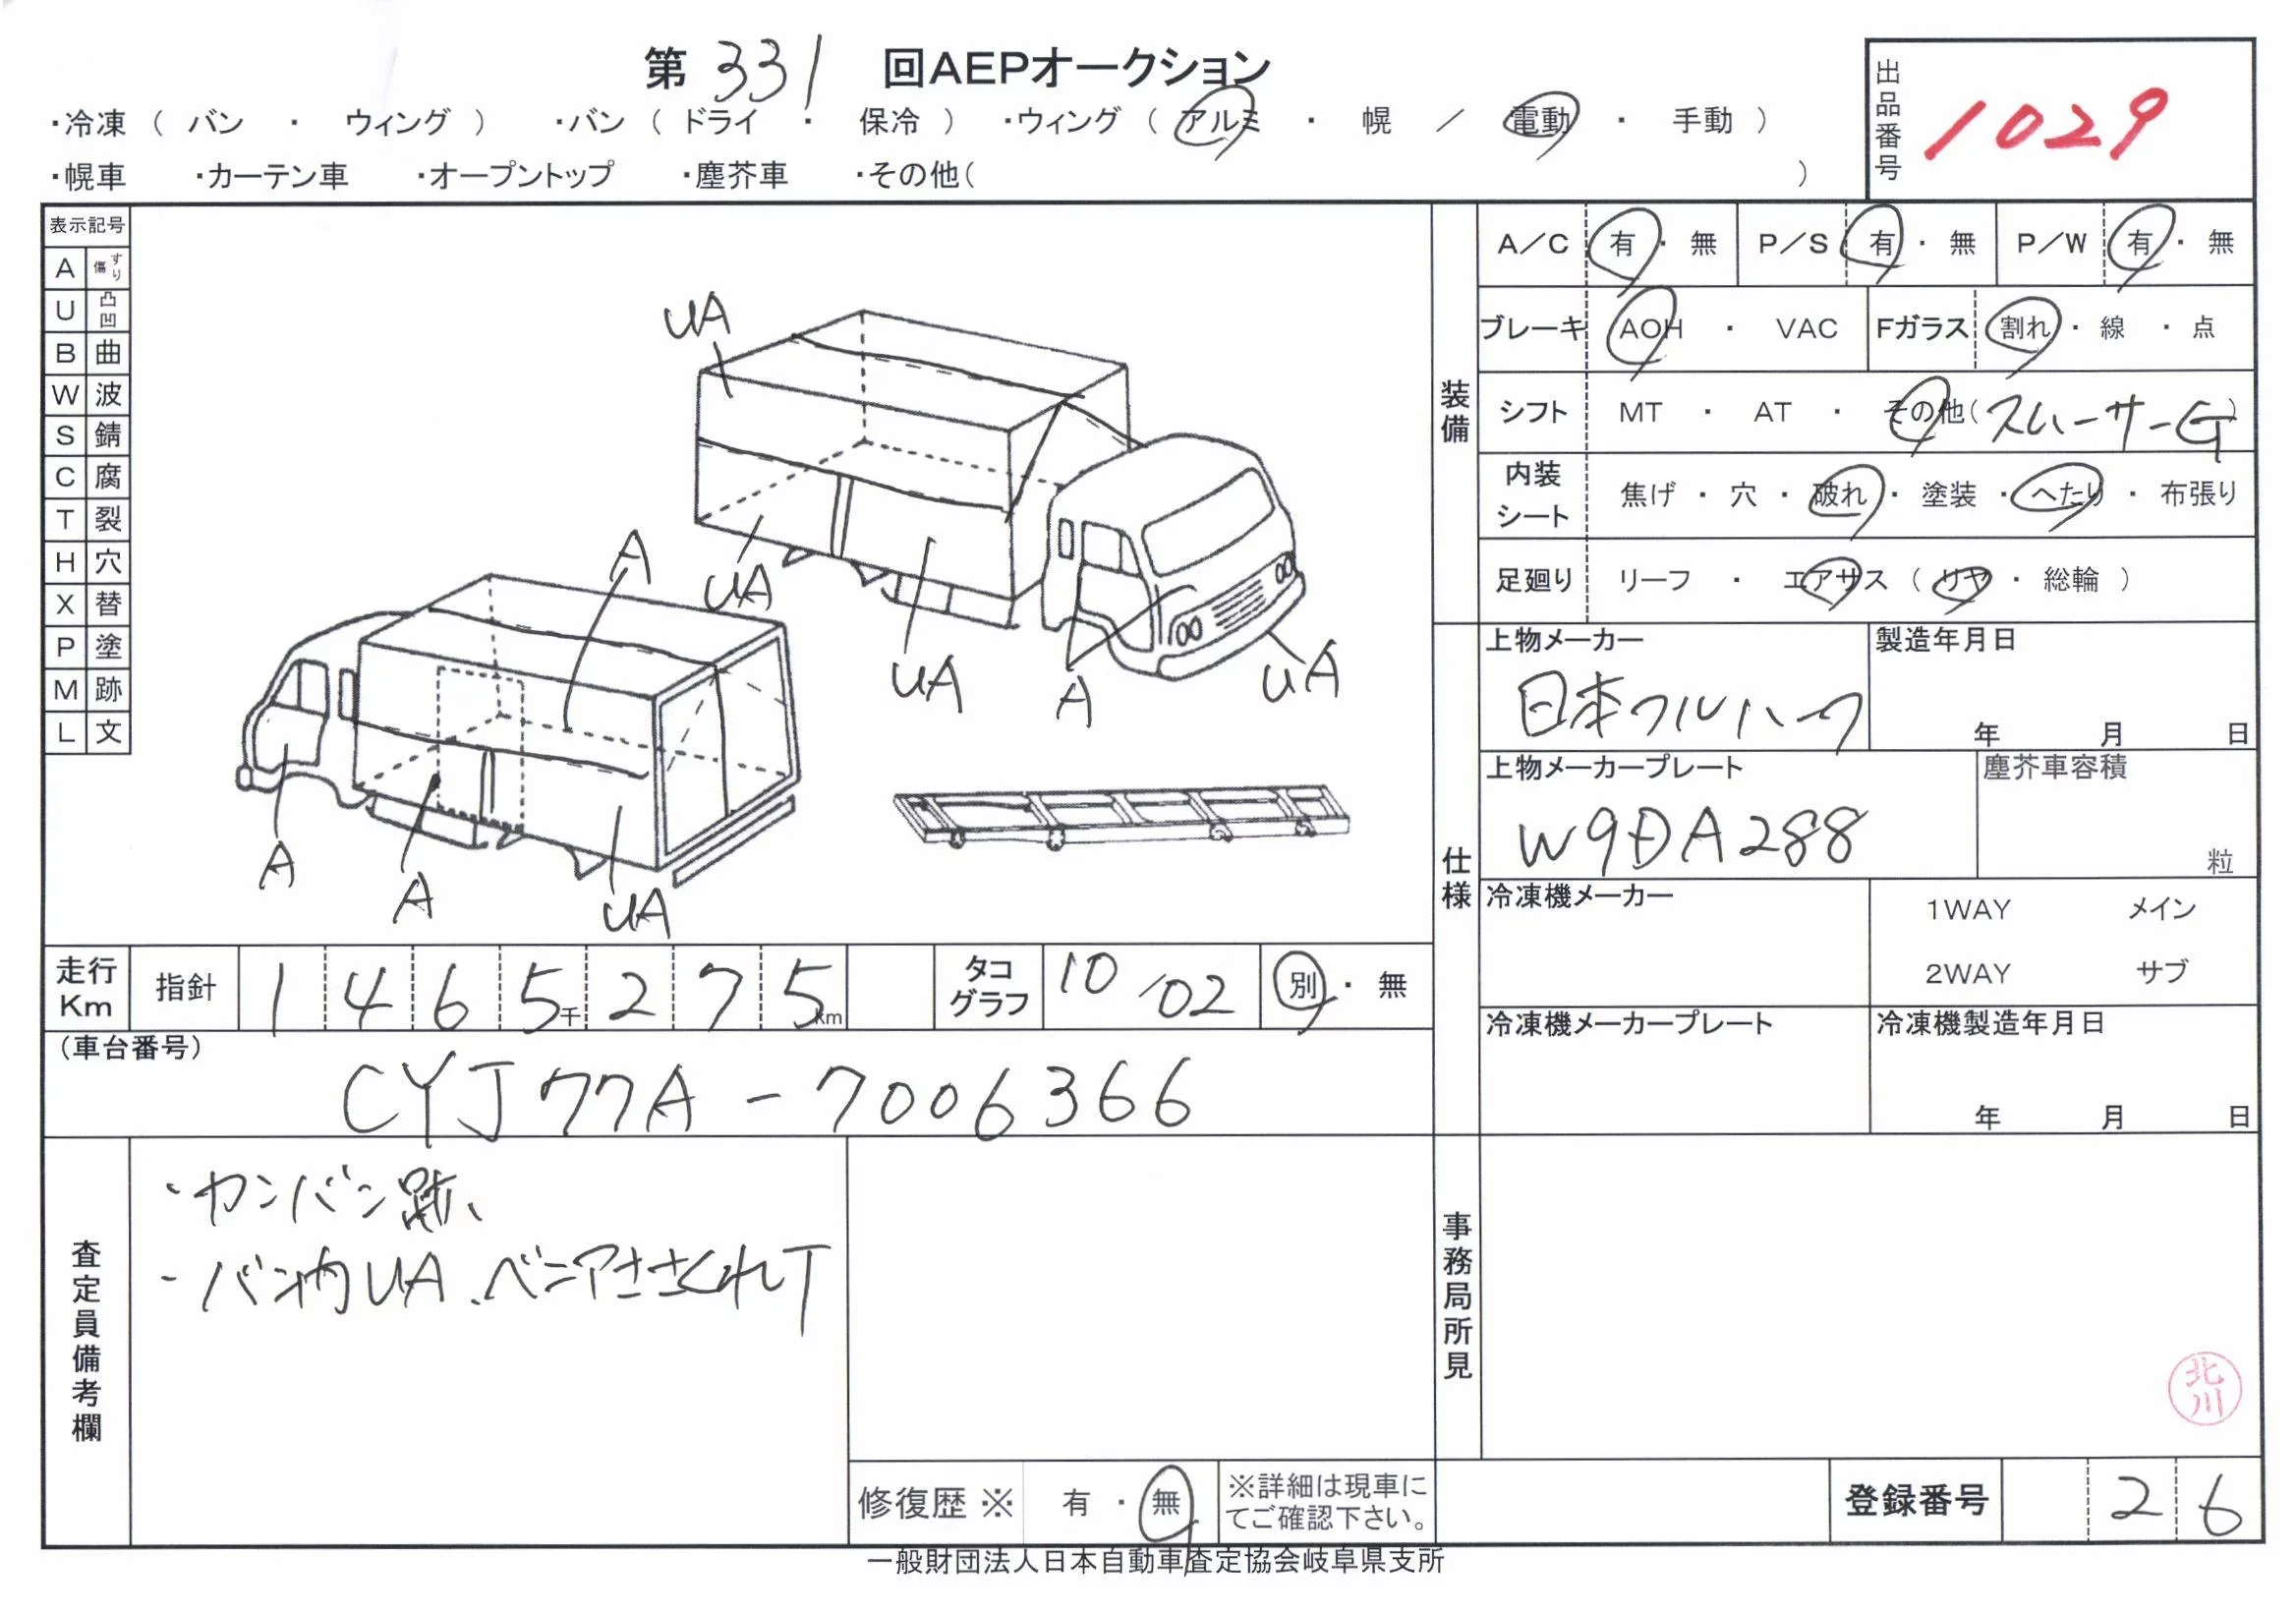 第 331 回AEPオークション
出品番号 1029
・冷凍（ バン ・ ウィング ） ・バン（ ドライ ・ 保冷 ） ・ウィング（ アルミ ・ 幌 ／ 電動 ・ 手動 ）
・幌車 ・カーテン車 ・オープントップ ・塵芥車 ・その他（ ）
表示記号
A すり傷
U 凸凹
B 曲
W 波
S 錆
C 腐
T 裂
H 穴
X 替
P 塗
M 跡
L 文
UA
UA
UA
A
UA
A
A
A
UA
装備
A／C 有・無 P／S 有・無 P／W 有・無
ブレーキ AOH ・ VAC Fガラス 割れ・線・点
シフト MT ・ AT ・ その他（スムーサーG）
内装シート 焦げ・穴・破れ・塗装・へたり・布張り
足廻り リーフ ・ エアサス（ リヤ ・ 総輪 ）
仕様
上物メーカー 製造年月日
日本フルハーフ 年 月 日
上物メーカープレート 塵芥車容積
W9DA288 粒
冷凍機メーカー 1WAY メイン
2WAY サブ
冷凍機メーカープレート 冷凍機製造年月日
年 月 日
走行Km 指針 1465千275km タコグラフ 10/02 別・無
（車台番号）
CYJ77A-7006366
査定員備考欄
・カンバン跡、
・バン内UA、ベニアささくれT
修復歴※ 有・無 ※詳細は現車にてご確認下さい。
事務局所見
北川
登録番号 26
一般財団法人日本自動車査定協会岐阜県支所